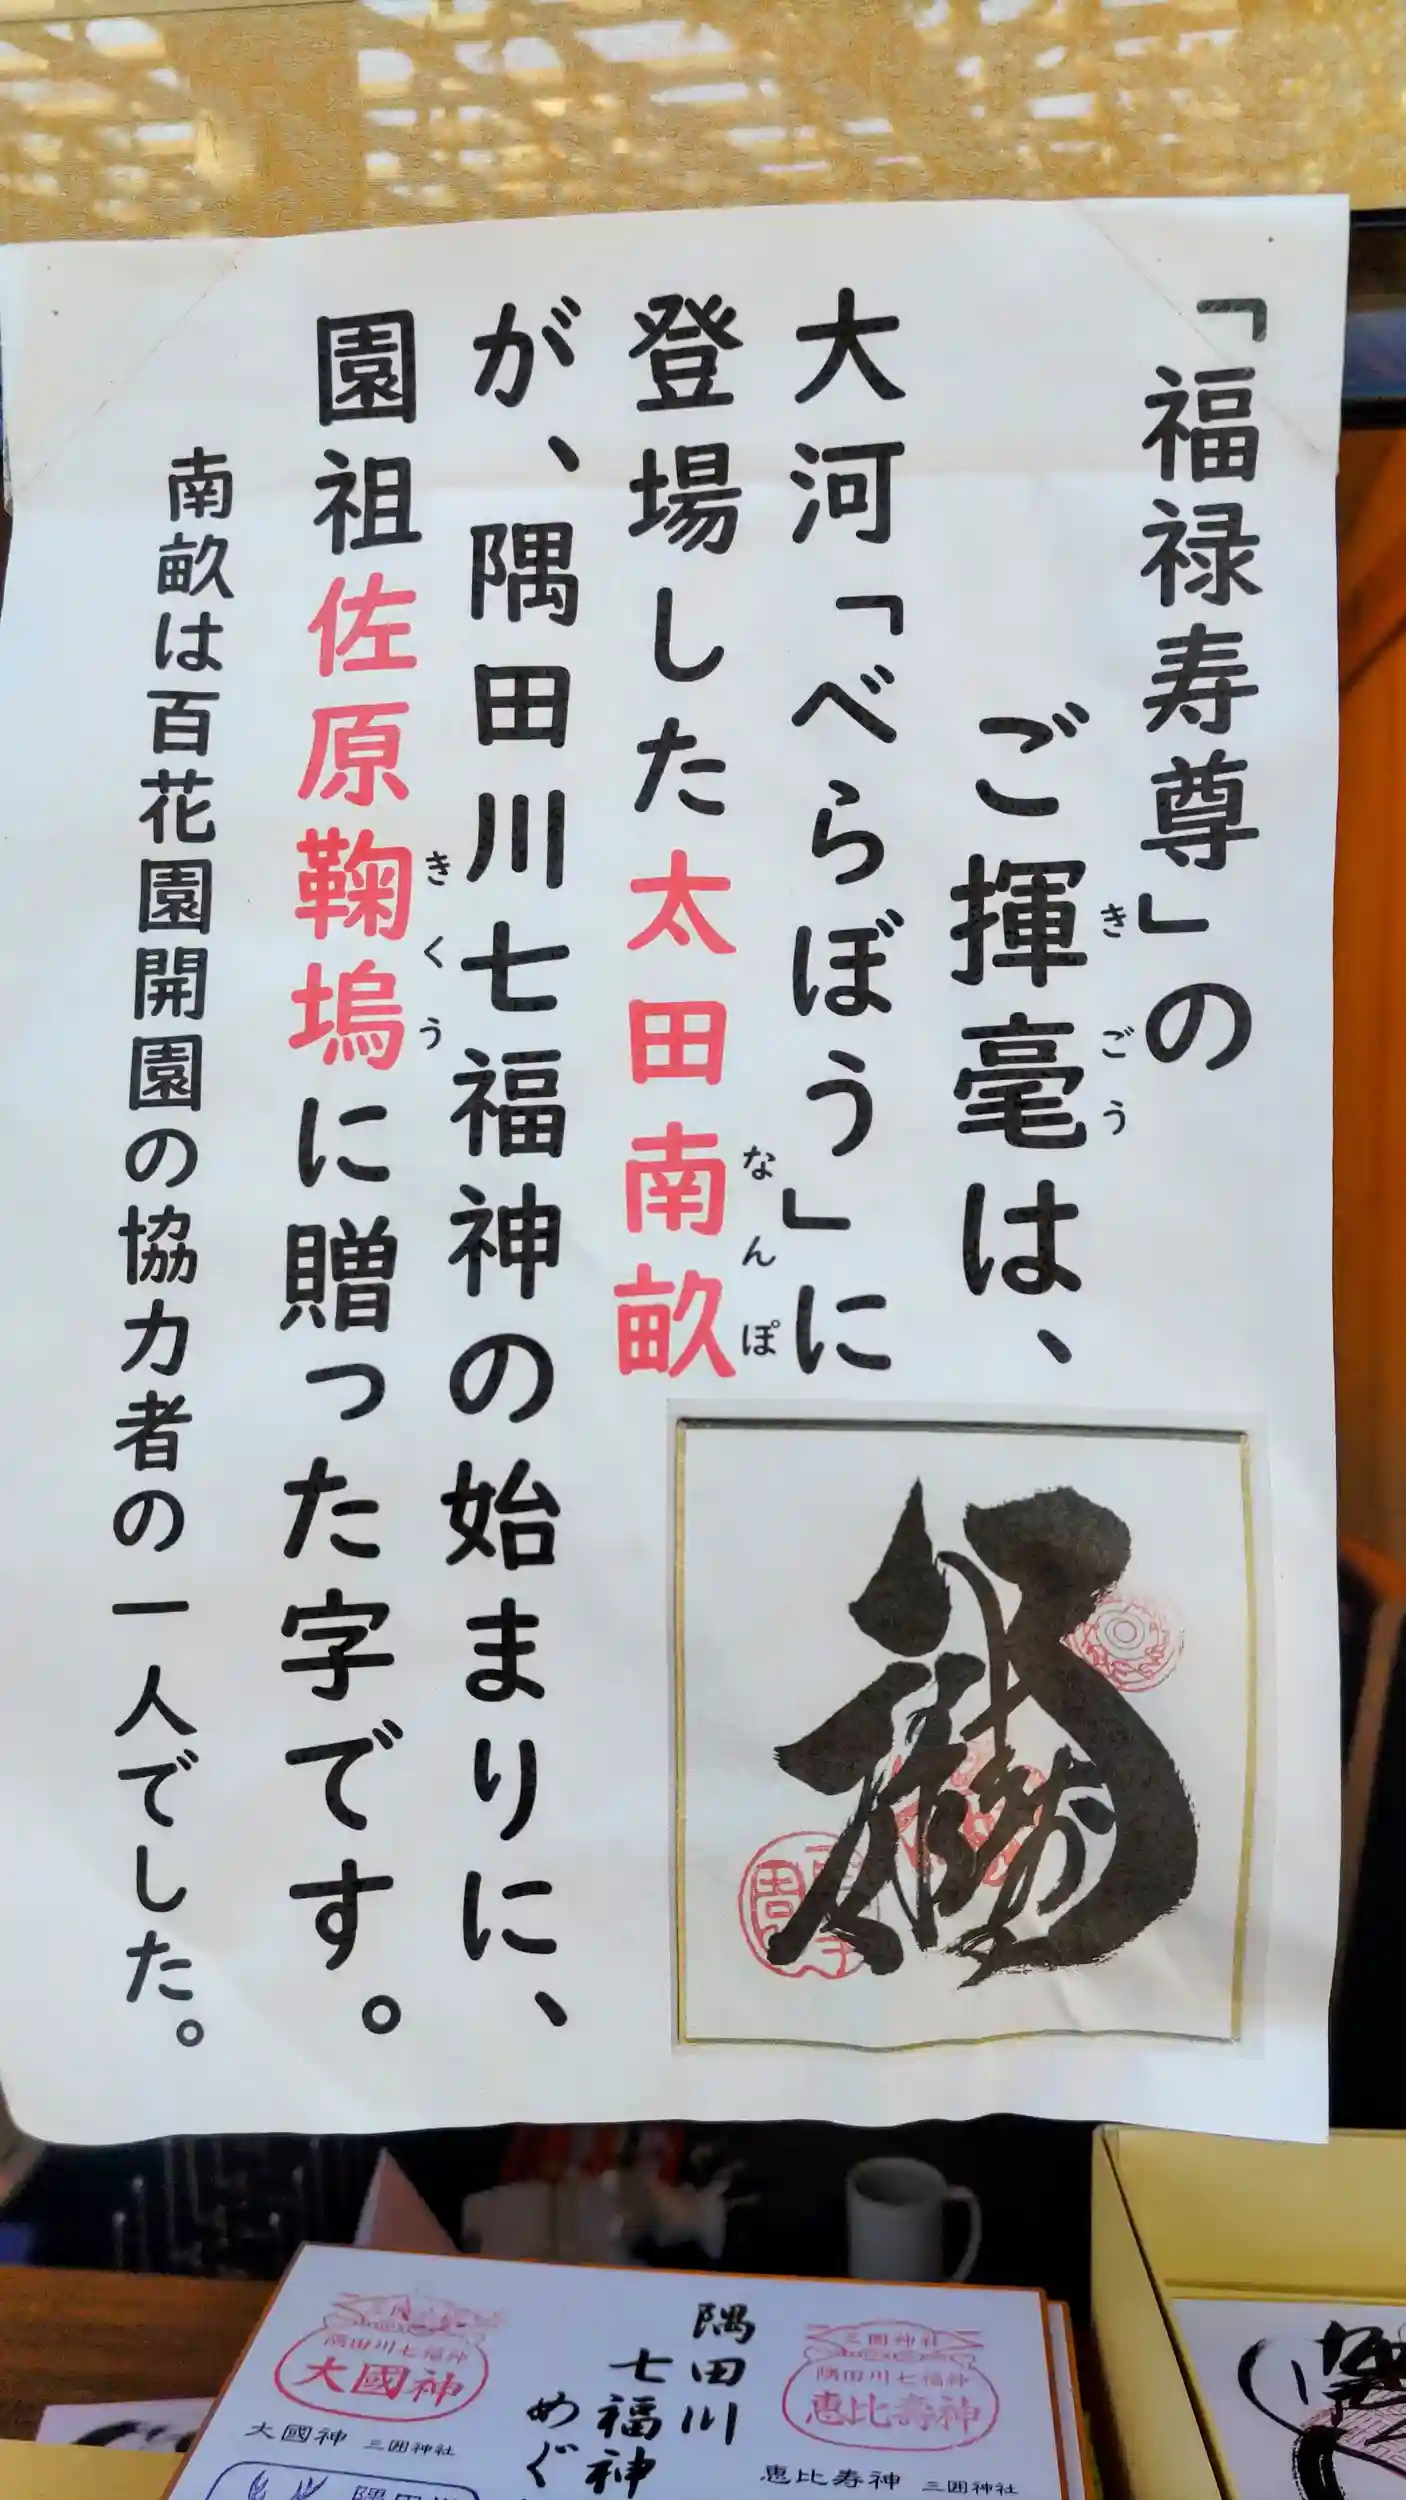 「福禄寿尊」の
ご揮毫は、
きごう
大河「べらぼう」に
登場した太田南畝
なんぽ
が、隅田川七福神の始まりに、
園祖佐原鞠塢に贈った字です。
きくう
南畝は百花園開園の協力者の一人でした。
隅田川七福神
大國神
大國神 三囲神社
隅田川
七福神
めぐ
三囲神社
隅田川七福神
恵比壽神
恵比寿神 三囲神社